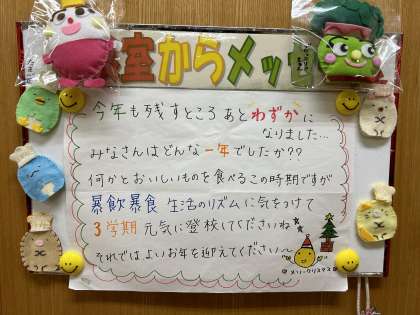 室からメッセ
今年も残すところあとわずかに
なりました…
みなさんはどんな一年でしたか??
何かとおいしいものを食べるこの時期ですが
暴飲暴食 生活のリズムに気をつけて
3学期 元気に登校してくださいね
それではよいお年を迎えてください〜
メリークリスマス